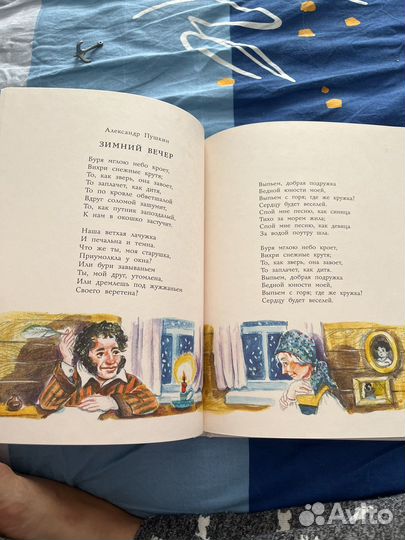 Александр Пушкин
ЗИМНИЙ ВЕЧЕР
Буря мглою небо кроет,
Вихри снежные крутя;
То, как зверь, она завоет,
То заплачет, как дитя,
То по кровле обветшалой
Вдруг соломой зашумит,
То, как путник запоздалый,
К нам в окошко застучит.
Наша ветхая лачужка
И печальна и темна.
Что же ты, моя старушка,
Приумолкла у окна?
Или бури завываньем
Ты, мой друг, утомлена,
Или дремлешь под жужжаньем
Своего веретена?
Выпьем, добрая подружка
Бедной юности моей,
Выпьем с горя; где же кружка?
Сердцу будет веселей.
Спой мне песню, как синица
Тихо за морем жила;
Спой мне песню, как девица
За водой поутру шла.
Буря мглою небо кроет,
Вихри снежные крутя;
То, как зверь, она завоет,
То заплачет, как дитя.
Выпьем, добрая подружка
Бедной юности моей,
Выпьем с горя; где же кружка?
Сердцу будет веселей.
Avito